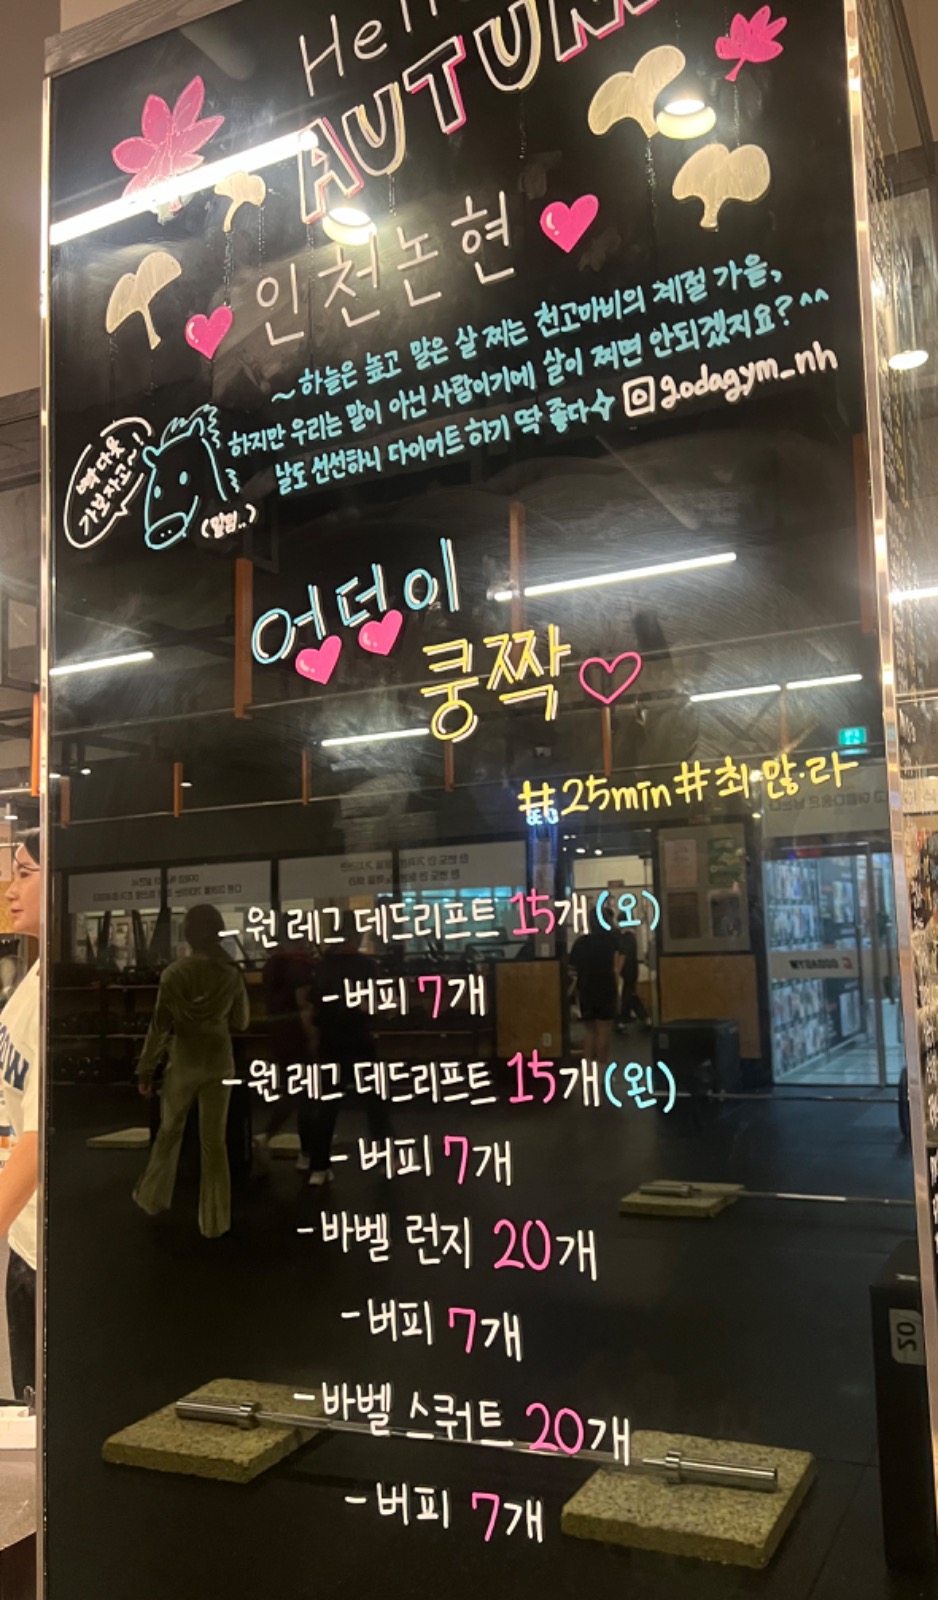 Hello
AUTUMN
인천논현
~하늘은 높고 말은 살 찌는 천고마비의 계절 가을,
하지만 우리는 말이 아닌 사람이기에 살이 찌면 안되겠지요?^^
날도 선선하니 다이어트 하기 딱 좋다☆ godagym_nh
빡다뭇
가보자고~!
엉덩이
쿵짝♡
#25min#최·많·라
-원 레그 데드리프트 15개(오)
-버피 7개
-원 레그 데드리프트 15개(왼)
-버피 7개
-바벨 런지 20개
-버피 7개
-바벨 스쿼트 20개
-버피 7개
20